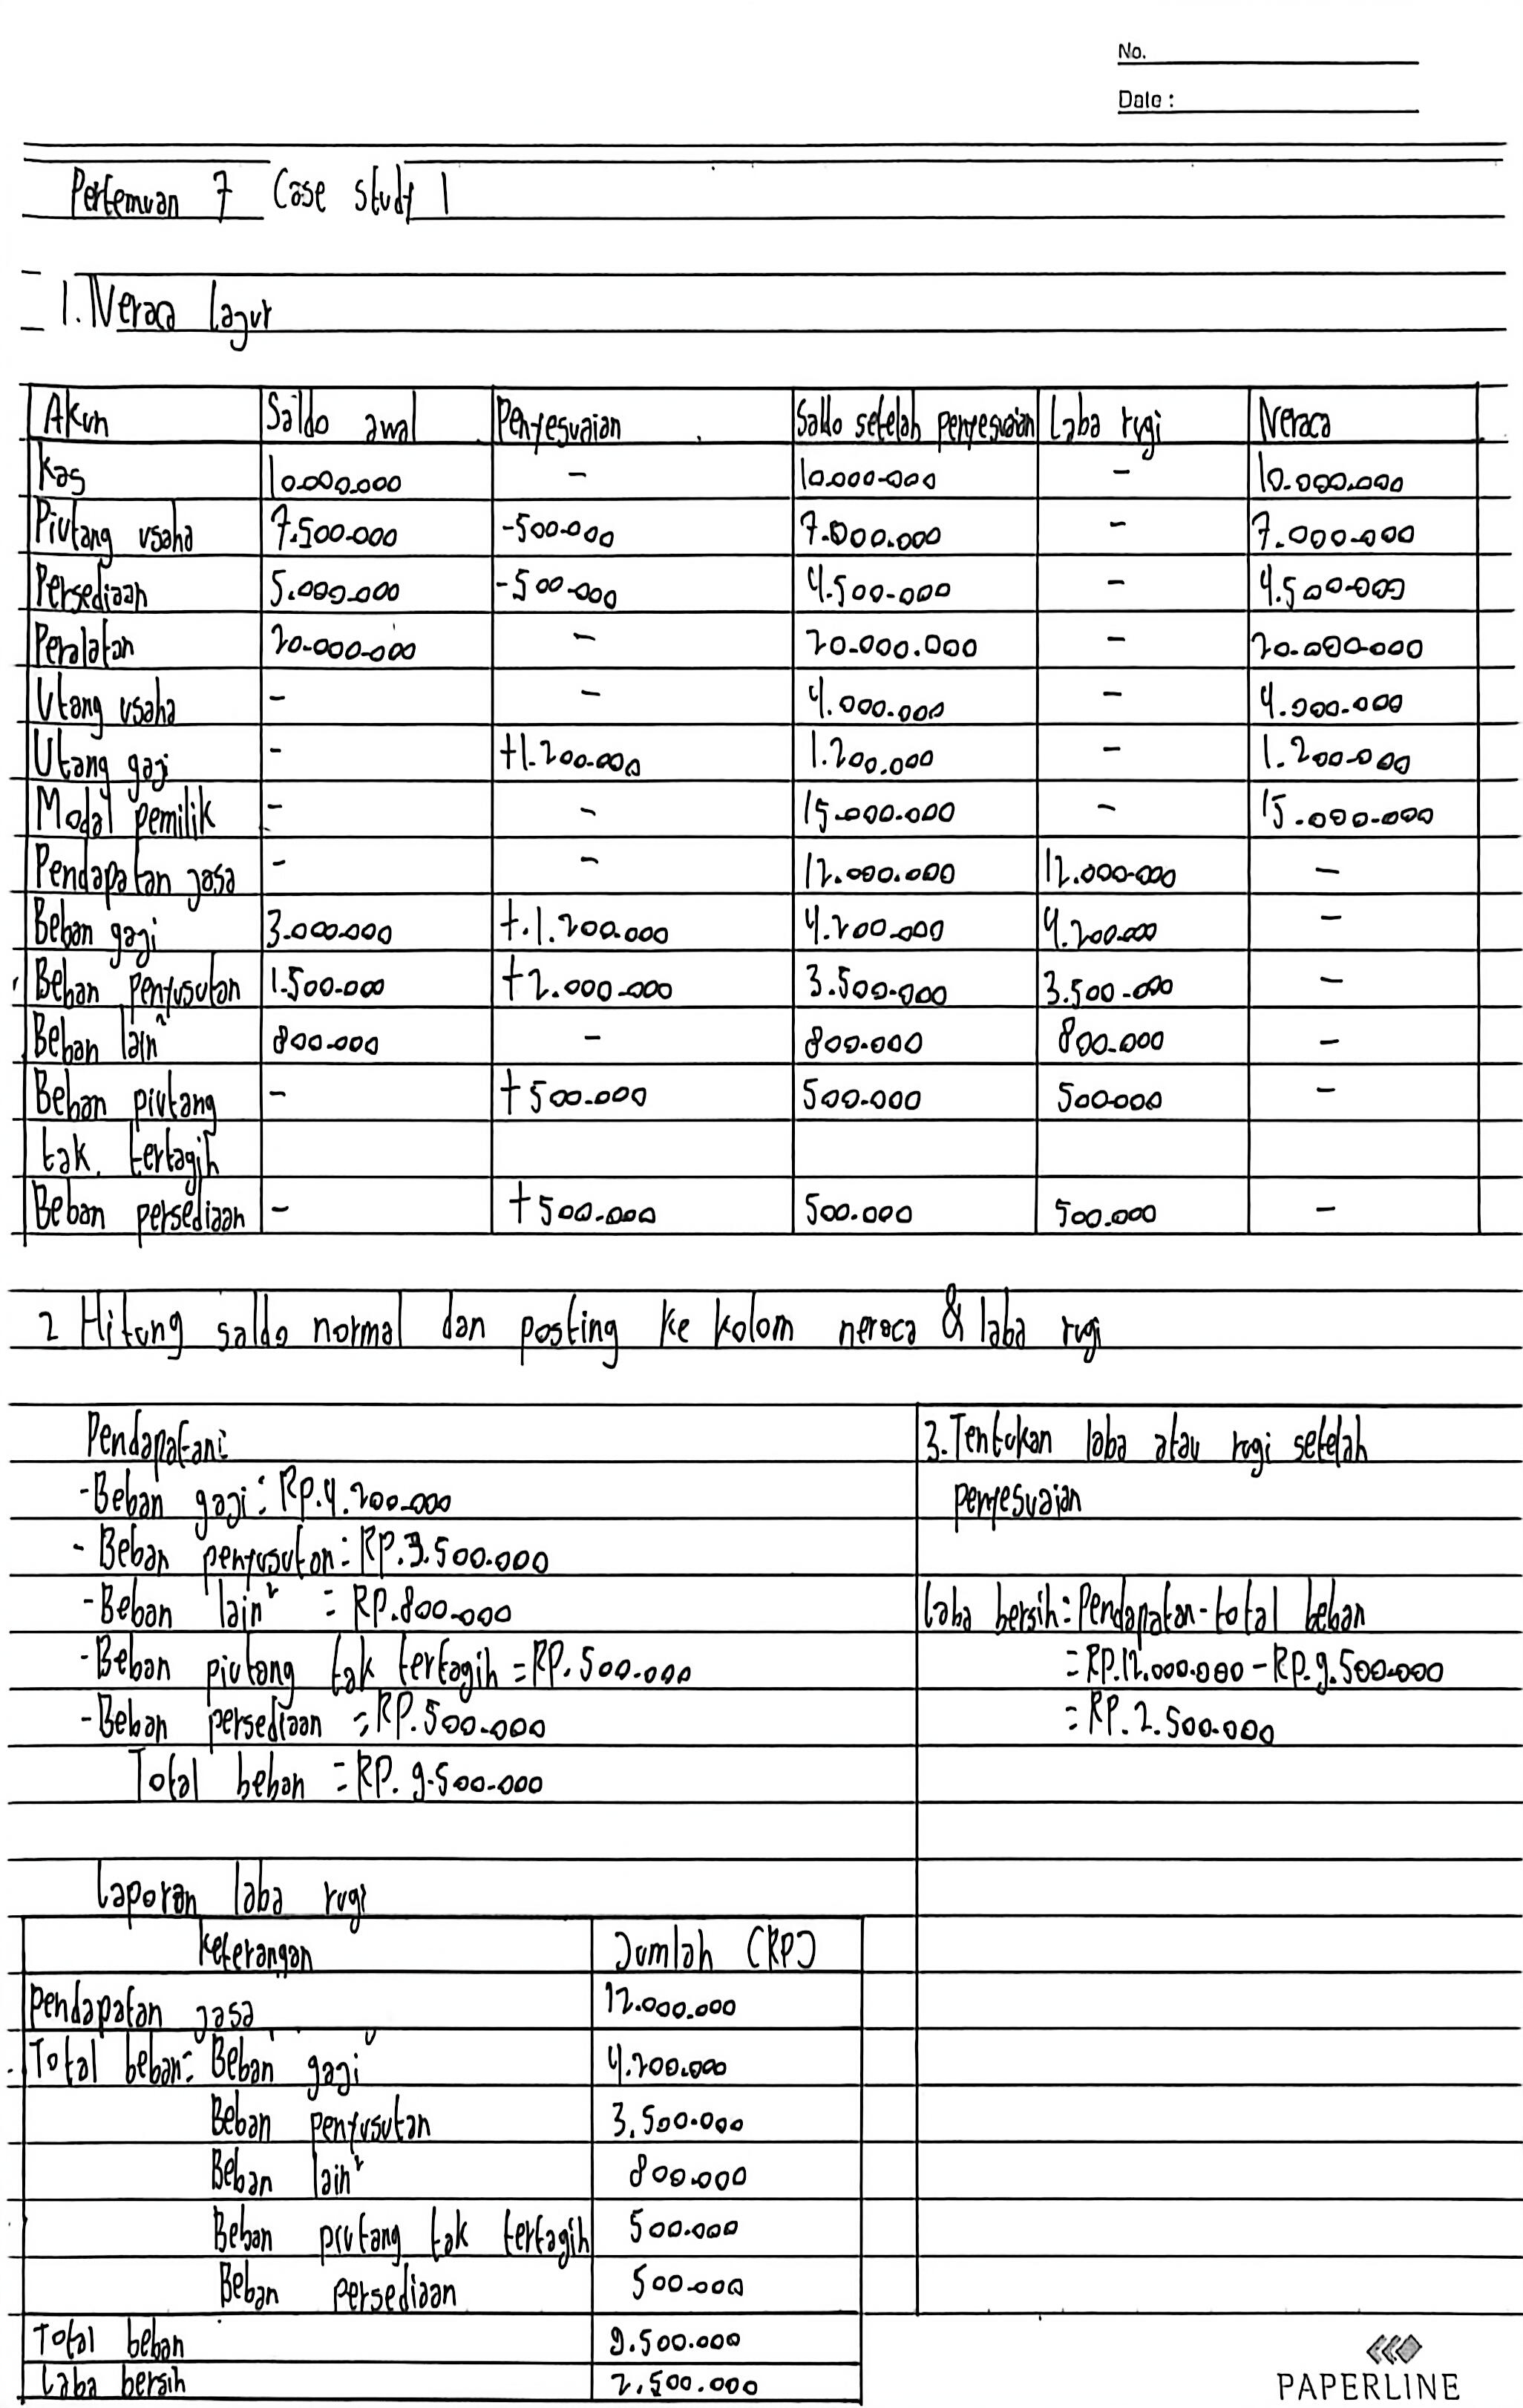 No.
Date :
Pertemuan 7 Case study 1
1. Neraca lajur
Akun Saldo awal Penyesuaian Saldo setelah penyesuaian Laba rugi Neraca
Kas 10.000.000 - 10.000.000 - 10.000.000
Piutang usaha 7.500.000 -500.000 7.000.000 - 7.000.000
Persediaan 5.000.000 -500.000 4.500.000 - 4.500.000
Peralatan 20.000.000 - 20.000.000 - 20.000.000
Utang usaha - - 4.000.000 - 4.000.000
Utang gaji - +1.200.000 1.200.000 - 1.200.000
Modal pemilik - - 15.000.000 - 15.000.000
Pendapatan jasa - - 12.000.000 12.000.000 -
Beban gaji 3.000.000 +.1.200.000 4.200.000 4.200.000 -
Beban penyusutan 1.500.000 +2.000.000 3.500.000 3.500.000 -
Beban lain² 800.000 - 800.000 800.000 -
Beban piutang - +500.000 500.000 500.000 -
tak. tertagih
Beban persediaan - +500.000 500.000 500.000 -
2 Hitung saldo normal dan posting ke kolom neraca & laba rugi
Pendapatan:
-Beban gaji: RP.4.200.000
- Beban penyusutan= RP.3.500.000
-Beban lain² = RP.800.000
-Beban piutang tak tertagih =RP.500.000
-Beban persediaan =RP.500.000
Total beban = RP. 9.500.000
3. Tentukan laba atau rugi setelah
penyesuaian
Laba bersih= Pendapatan-total beban
= RP.12.000.000 - RP.9.500.000
= RP. 2.500.000
Laporan laba rugi
Keterangan Jumlah (RP)
Pendapatan jasa 12.000.000
Total beban: Beban gaji 4.200.000
Beban penyusutan 3.500.000
Beban lain² 800.000
Beban piutang tak tertagih 500.000
Beban persediaan 500.000
Total beban 9.500.000
Laba bersih 2.500.000
PAPERLINE